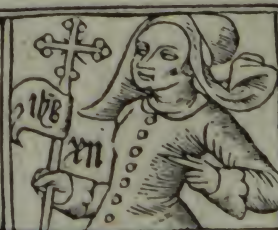 ihs
xn